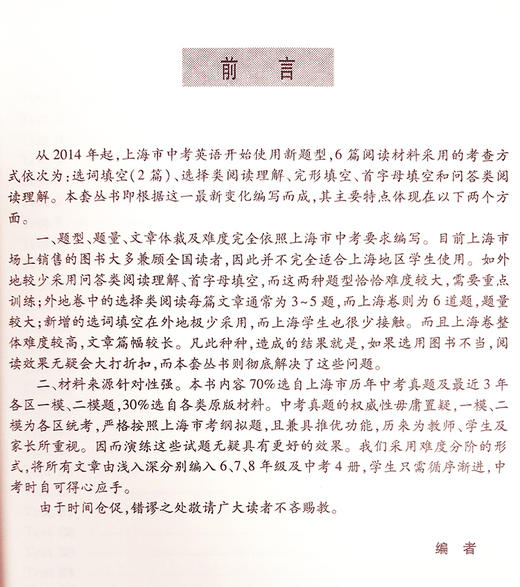 前 言
从 2014 年起,上海市中考英语开始使用新题型,6 篇阅读材料采用的考查方
式依次为:选词填空(2 篇)、选择类阅读理解、完形填空、首字母填空和问答类阅
读理解。本套丛书即根据这一最新变化编写而成,其主要特点体现在以下两个方
面。
一、题型、题量、文章体裁及难度完全依照上海市中考要求编写。目前上海市
场上销售的图书大多兼顾全国读者,因此并不完全适合上海地区学生使用。如外
地较少采用问答类阅读理解、首字母填空,而这两种题型恰恰难度较大,需要重点
训练;外地卷中的选择类阅读每篇文章通常为 3~5 题,而上海卷则为 6 道题,题量
较大;新增的选词填空在外地极少采用,而上海学生也很少接触。而且上海卷整
体难度较高,文章篇幅较长。凡此种种,造成的结果就是,如果选用图书不当,阅
读效果无疑会大打折扣,而本套丛书则彻底解决了这些问题。
二、材料来源针对性强。本书内容 70%选自上海市历年中考真题及最近 3 年
各区一模、二模题,30%选自各类原版材料。中考真题的权威性毋庸置疑,一模、二
模为各区统考,严格按照上海市考纲拟题,且兼具推优功能,历来为教师、学生及
家长所重视。因而演练这些试题无疑具有更好的效果。我们采用难度分阶的形
式,将所有文章由浅入深分别编入 6、7、8 年级及中考 4 册,学生只需循序渐进,中
考时自可得心应手。
由于时间仓促,错谬之处敬请广大读者不吝赐教。
编 者